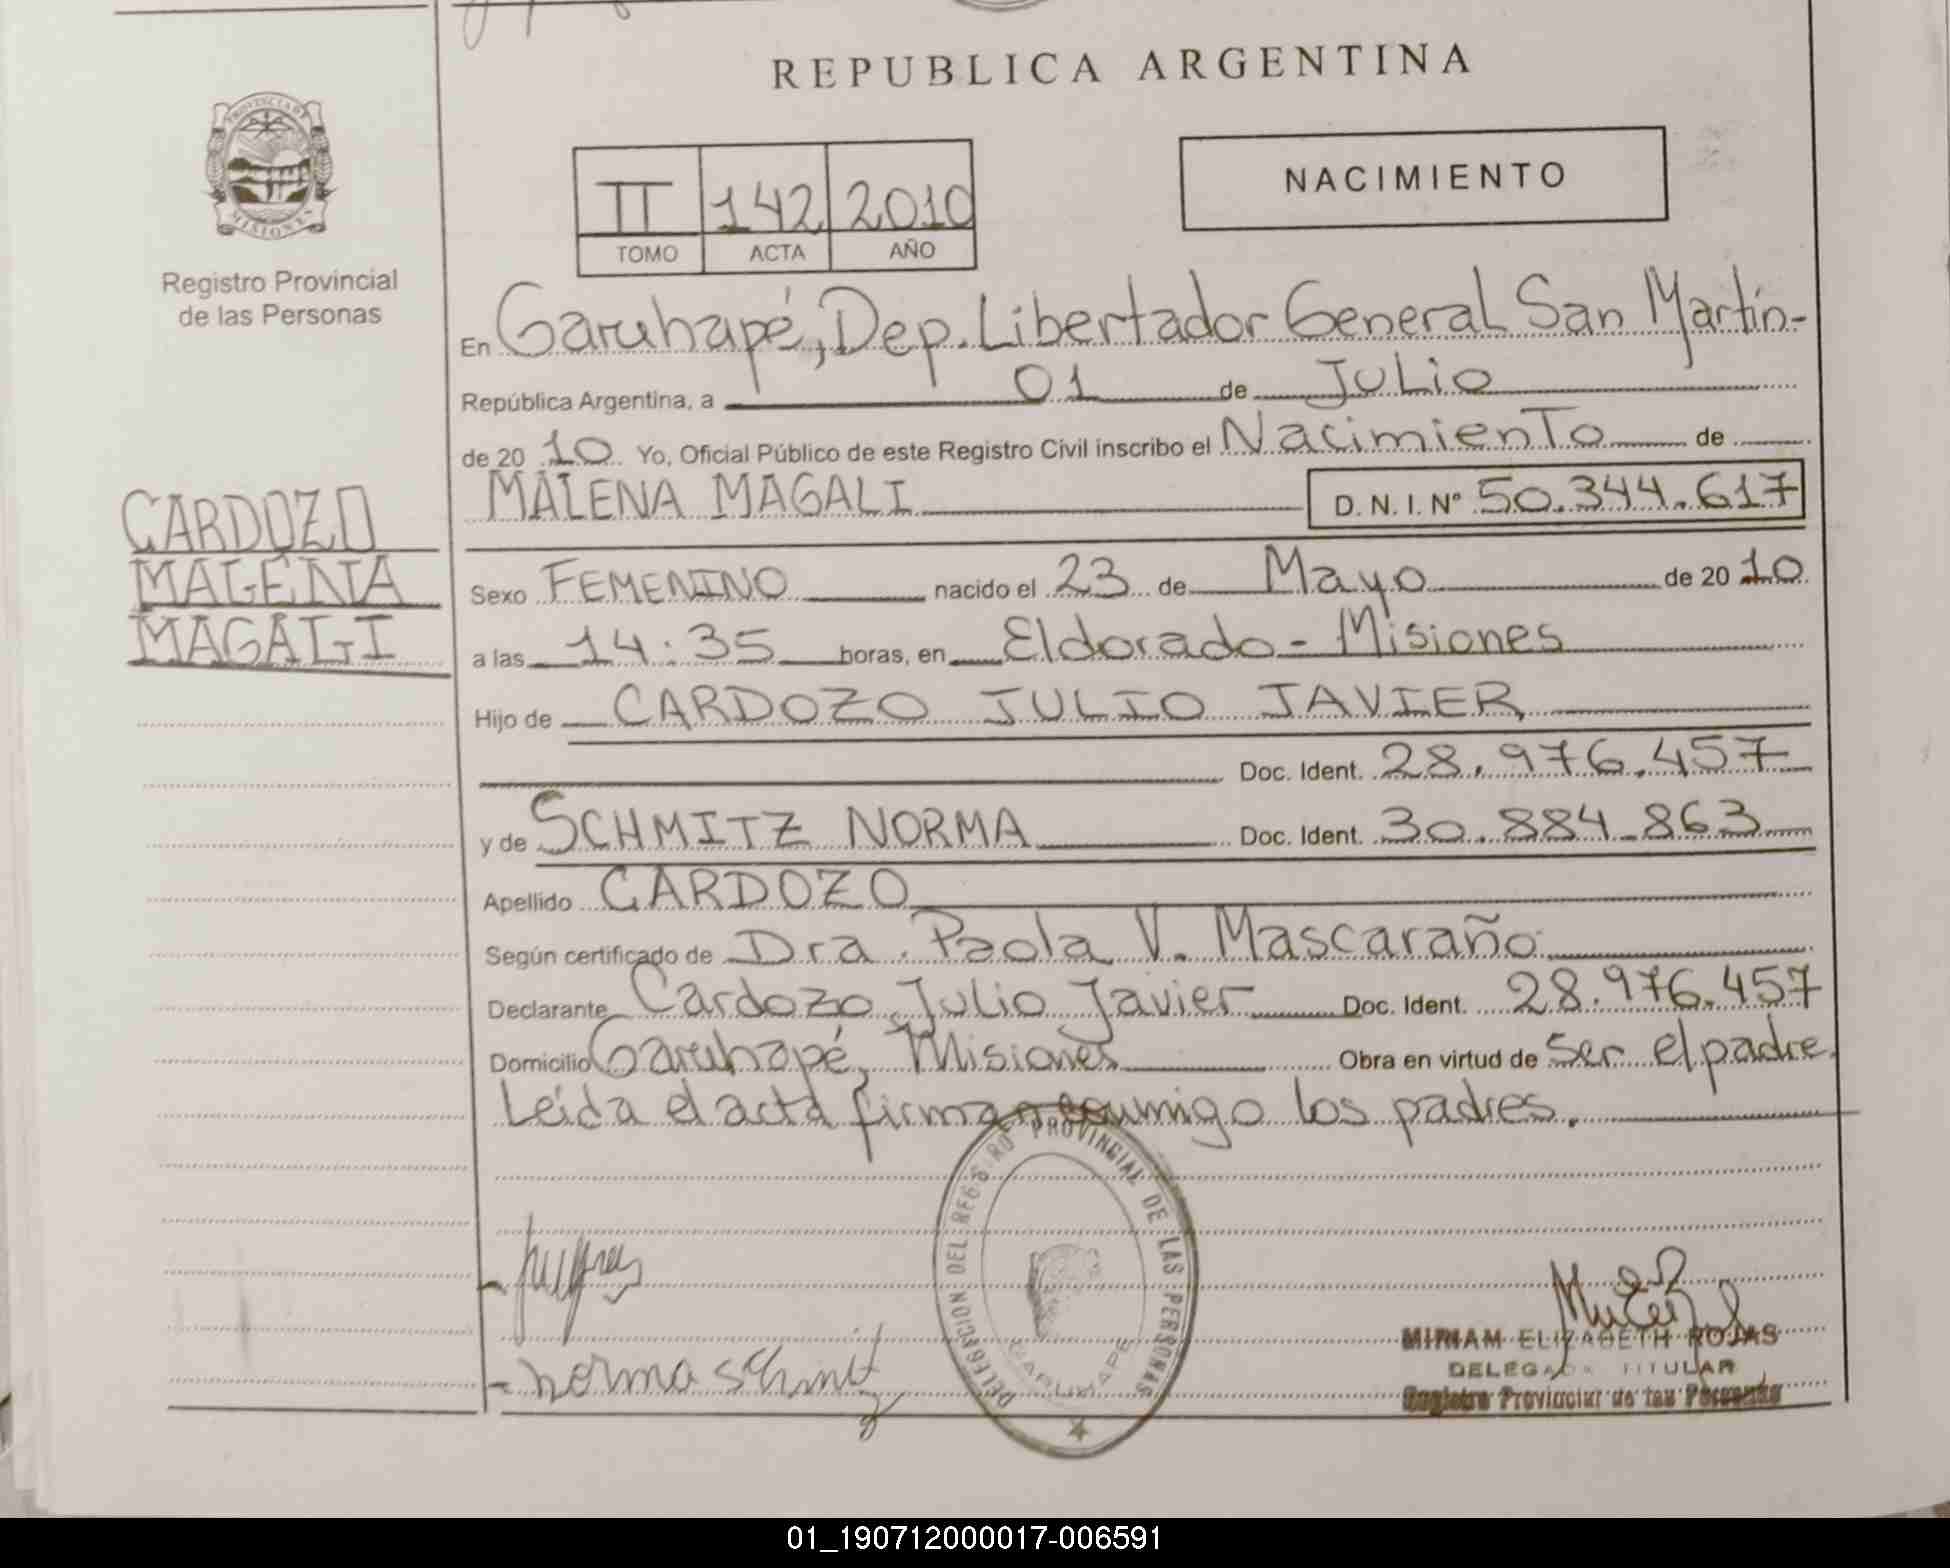 REPUBLICA ARGENTINA
PROVINCIA DE
MISIONES
Registro Provincial
de las Personas
II 142 2010
TOMO ACTA AÑO
NACIMIENTO
En Garuhapé, Dep. Libertador General San Martín-
República Argentina, a 01 de Julio
de 20 10 Yo, Oficial Público de este Registro Civil inscribo el Nacimiento de
MALENA MAGALI D.N.I. Nº 50.344.617
CARDOZO
MALENA
MAGALI
Sexo FEMENINO nacido el 23 de Mayo de 20 10
a las 14:35 horas, en Eldorado - Misiones
Hijo de CARDOZO JULIO JAVIER
Doc. Ident. 28.976.457
y de SCHMITZ NORMA Doc. Ident. 30.884.863
Apellido CARDOZO
Según certificado de Dra. Paola V. Mascaraño
Declarante Cardozo Julio Javier Doc. Ident. 28.976.457
Domicilio Garuhapé, Misiones Obra en virtud de Ser el padre
Leída el acta firman conmigo los padres.
DELEGACION DEL REGISTRO PROVINCIAL DE LAS PERSONAS
GARUHAPE
norma Schmitz
MIRIAM ELIZABETH ROJAS
DELEGADA TITULAR
Registro Provincial de las Personas
01_190712000017-006591